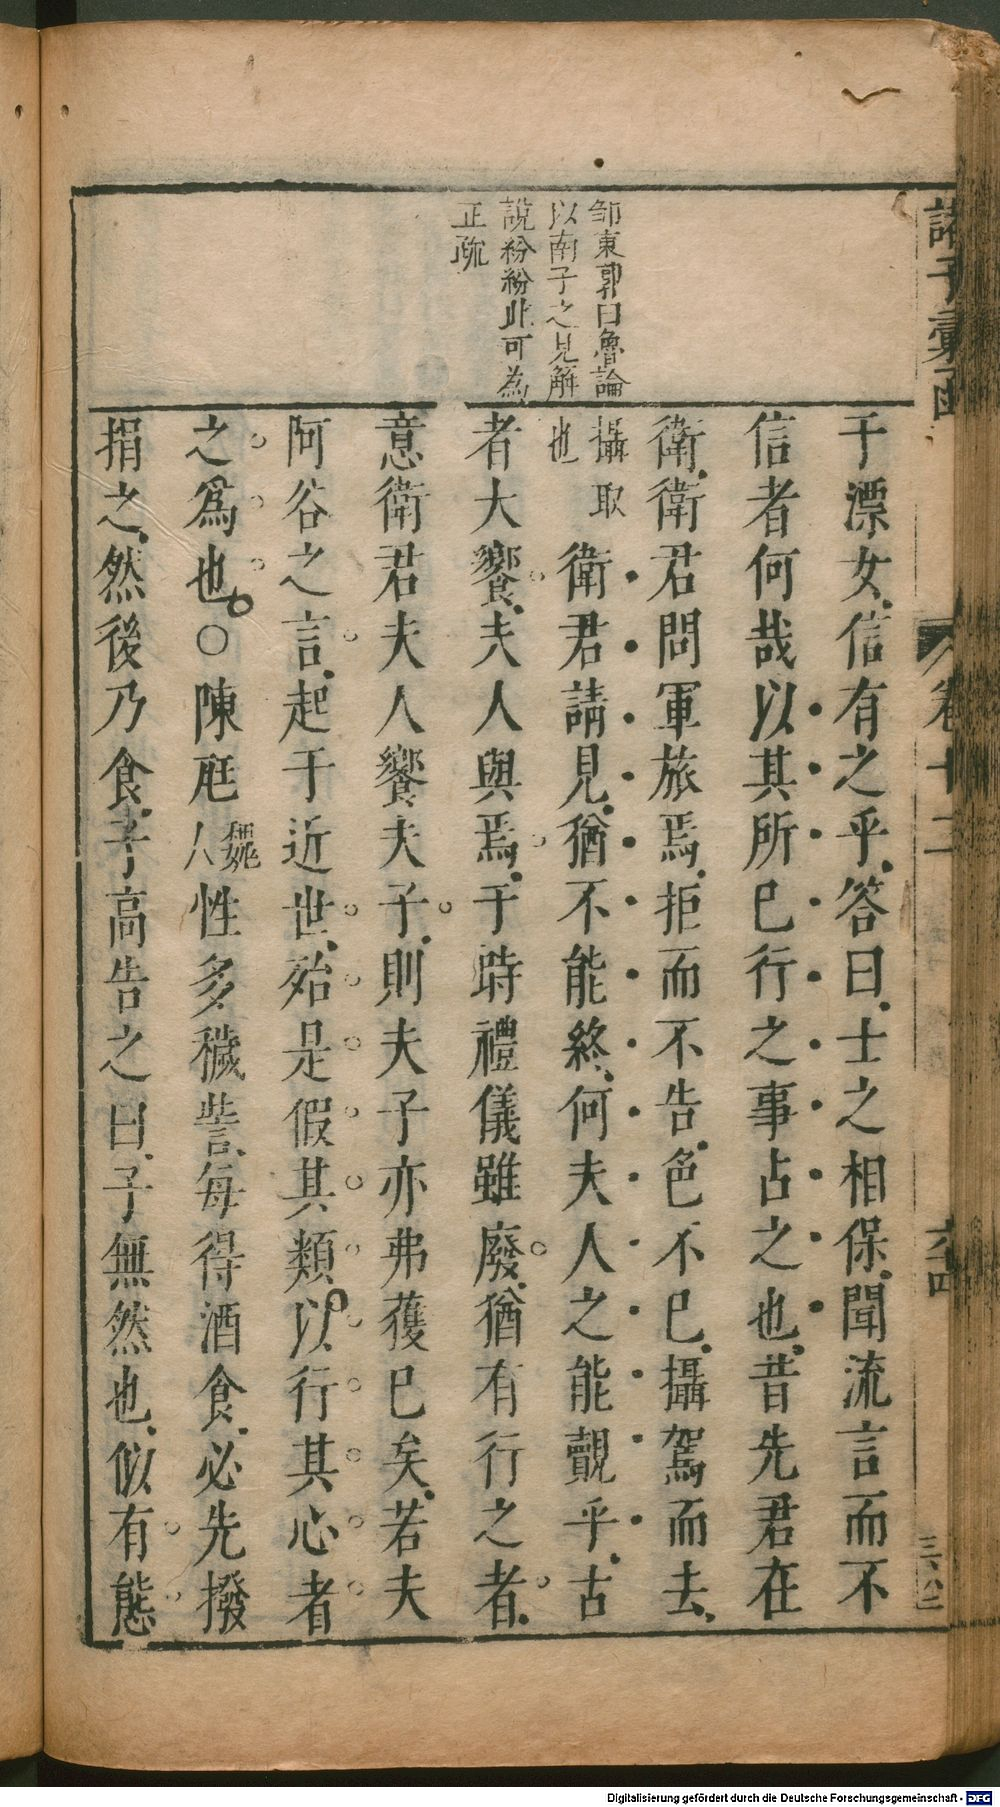 諸子彙函
卷十二
六四
于漂女信有之乎答曰士之相保聞流言而不
信者何哉以其所已行之事占之也昔先君在
衛衛君問軍旅焉拒而不告色不已攝駕而去
攝取
也
衛君請見猶不能終何夫人之能覿乎古
者大饗夫人與焉于時禮儀雖廢猶有行之者
意衛君夫人饗夫子則夫子亦弗獲已矣若夫
阿谷之言起于近世殆是假其類以行其心者
之爲也○陳尫
魏
人
性多穢訾每得酒食必先撥
捐之然後乃食子高告之曰子無然也似有態
邹東郭曰魯論
以南子之見解
說紛紛此可為
正疏
Digitalisierung gefördert durch die Deutsche Forschungsgemeinschaft - DFG